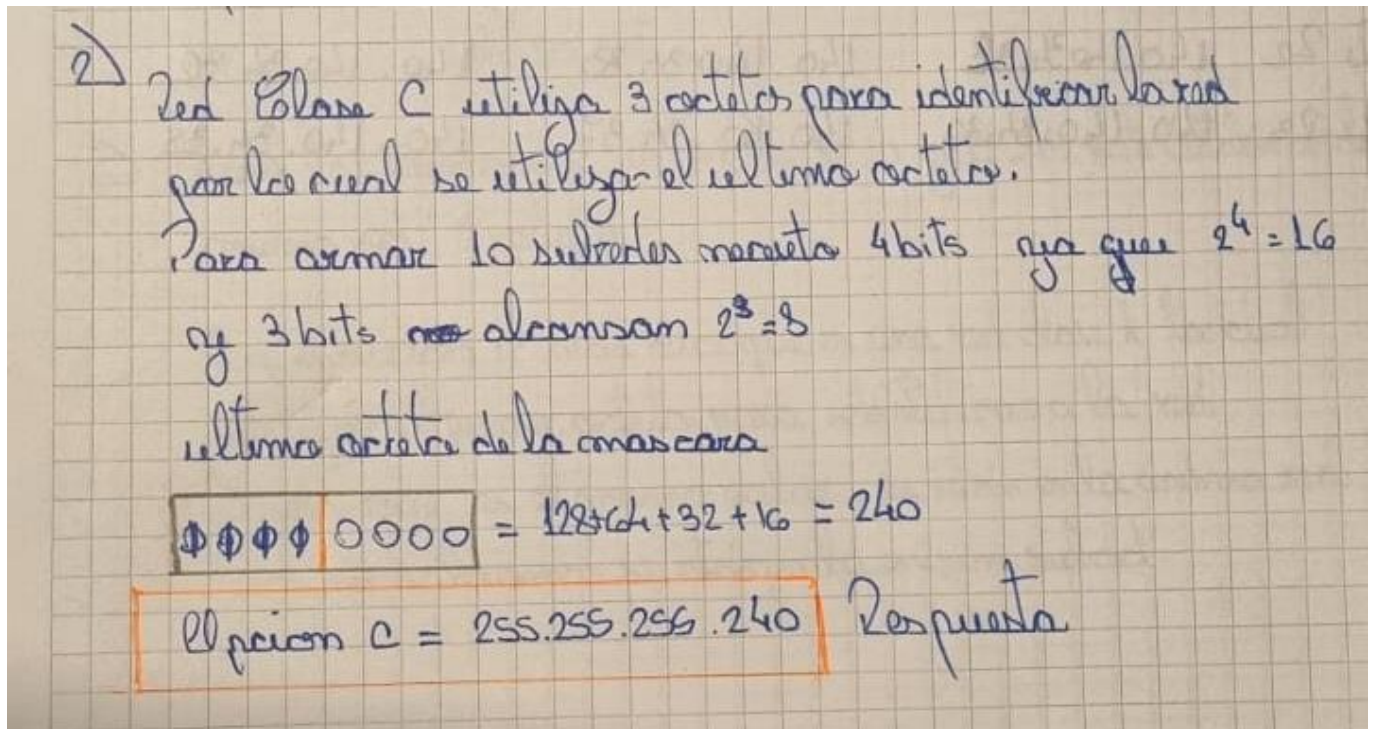 2)
Red Clase C utiliza 3 octetos para identificar la red
por lo cual se utiliza el ultimo octeto.
Para armar 10 subredes necesito 4 bits ya que 2⁴ = 16
y 3 bits no alcansan 2³ = 8
ultimo octeto de la mascara
1 1 1 1 0 0 0 0 = 128+64+32+16 = 240
Opcion C = 255.255.255.240 Respuesta